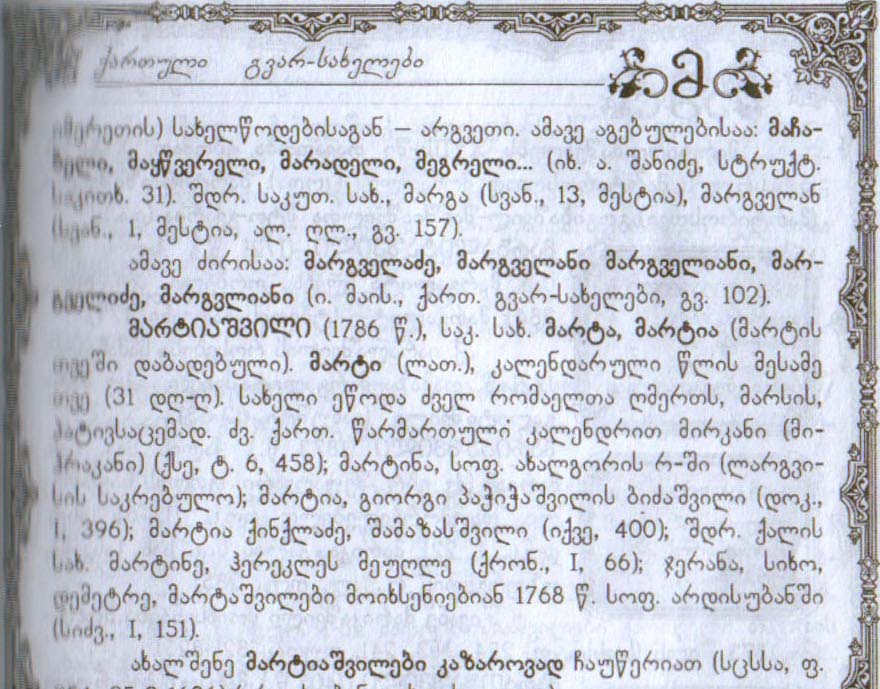 ქართული გვარ-სახელები
მ
იმერეთის) სახელწოდებისაგან – არგვეთი. ამავე აგებულებისაა: მაჩა-
ბელი, მაყწვერელი, მარადელი, მეგრელი... (იხ. ა. შანიძე, სტრუქტ.
საკითხ. 31). შდრ. საკუთ. სახ., მარგა (სვან., 13, მესტია), მარგველან
(სვან., 1, მესტია, ალ. ღლ., გვ. 157).
ამავე ძირისაა: მარგველაძე, მარგველანი მარგველიანი, მარ-
გველიძე, მარგვლიანი (ი. მაის., ქართ. გვარ-სახელები, გვ. 102).
მარტიაშვილი (1786 წ.), საკ. სახ. მარტა, მარტია (მარტის
თვეში დაბადებული). მარტი (ლათ.), კალენდარული წლის მესამე
თვე (31 დღ-ღ). სახელი ეწოდა ძველ რომაელთა ღმერთს, მარსის,
პატივსაცემად. ძვ. ქართ. წარმართული კალენდრით მირკანი (მი-
ჰრაკანი) (ქსე, ტ. 6, 458); მარტინა, სოფ. ახალგორის რ-ში (ლარგვი-
სის საკრებულო); მარტია, გიორგი პაჭიჭაშვილის ბიძაშვილი (დოკ.,
I, 396); მარტია ქინქლაძე, შამაზასშვილი (იქვე, 400); შდრ. ქალის
სახ. მარტინე, ჰერეკლეს მეუღლე (ქრონ., I, 66); ჯერანა, სიხო,
დემეტრე, მარტაშვილები მოიხსენიებიან 1768 წ. სოფ. არდისუბანში
(სიძვ., I, 151).
ახალშენე მარტიაშვილები კაზაროვად ჩაუწერიათ (სცსსა, ფ.